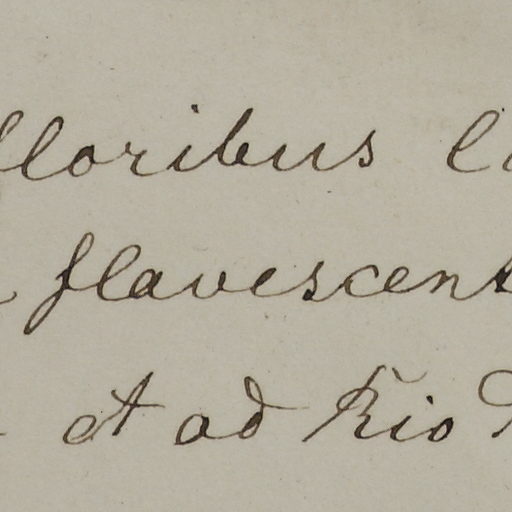 floribus
flavescent
et ad Rio